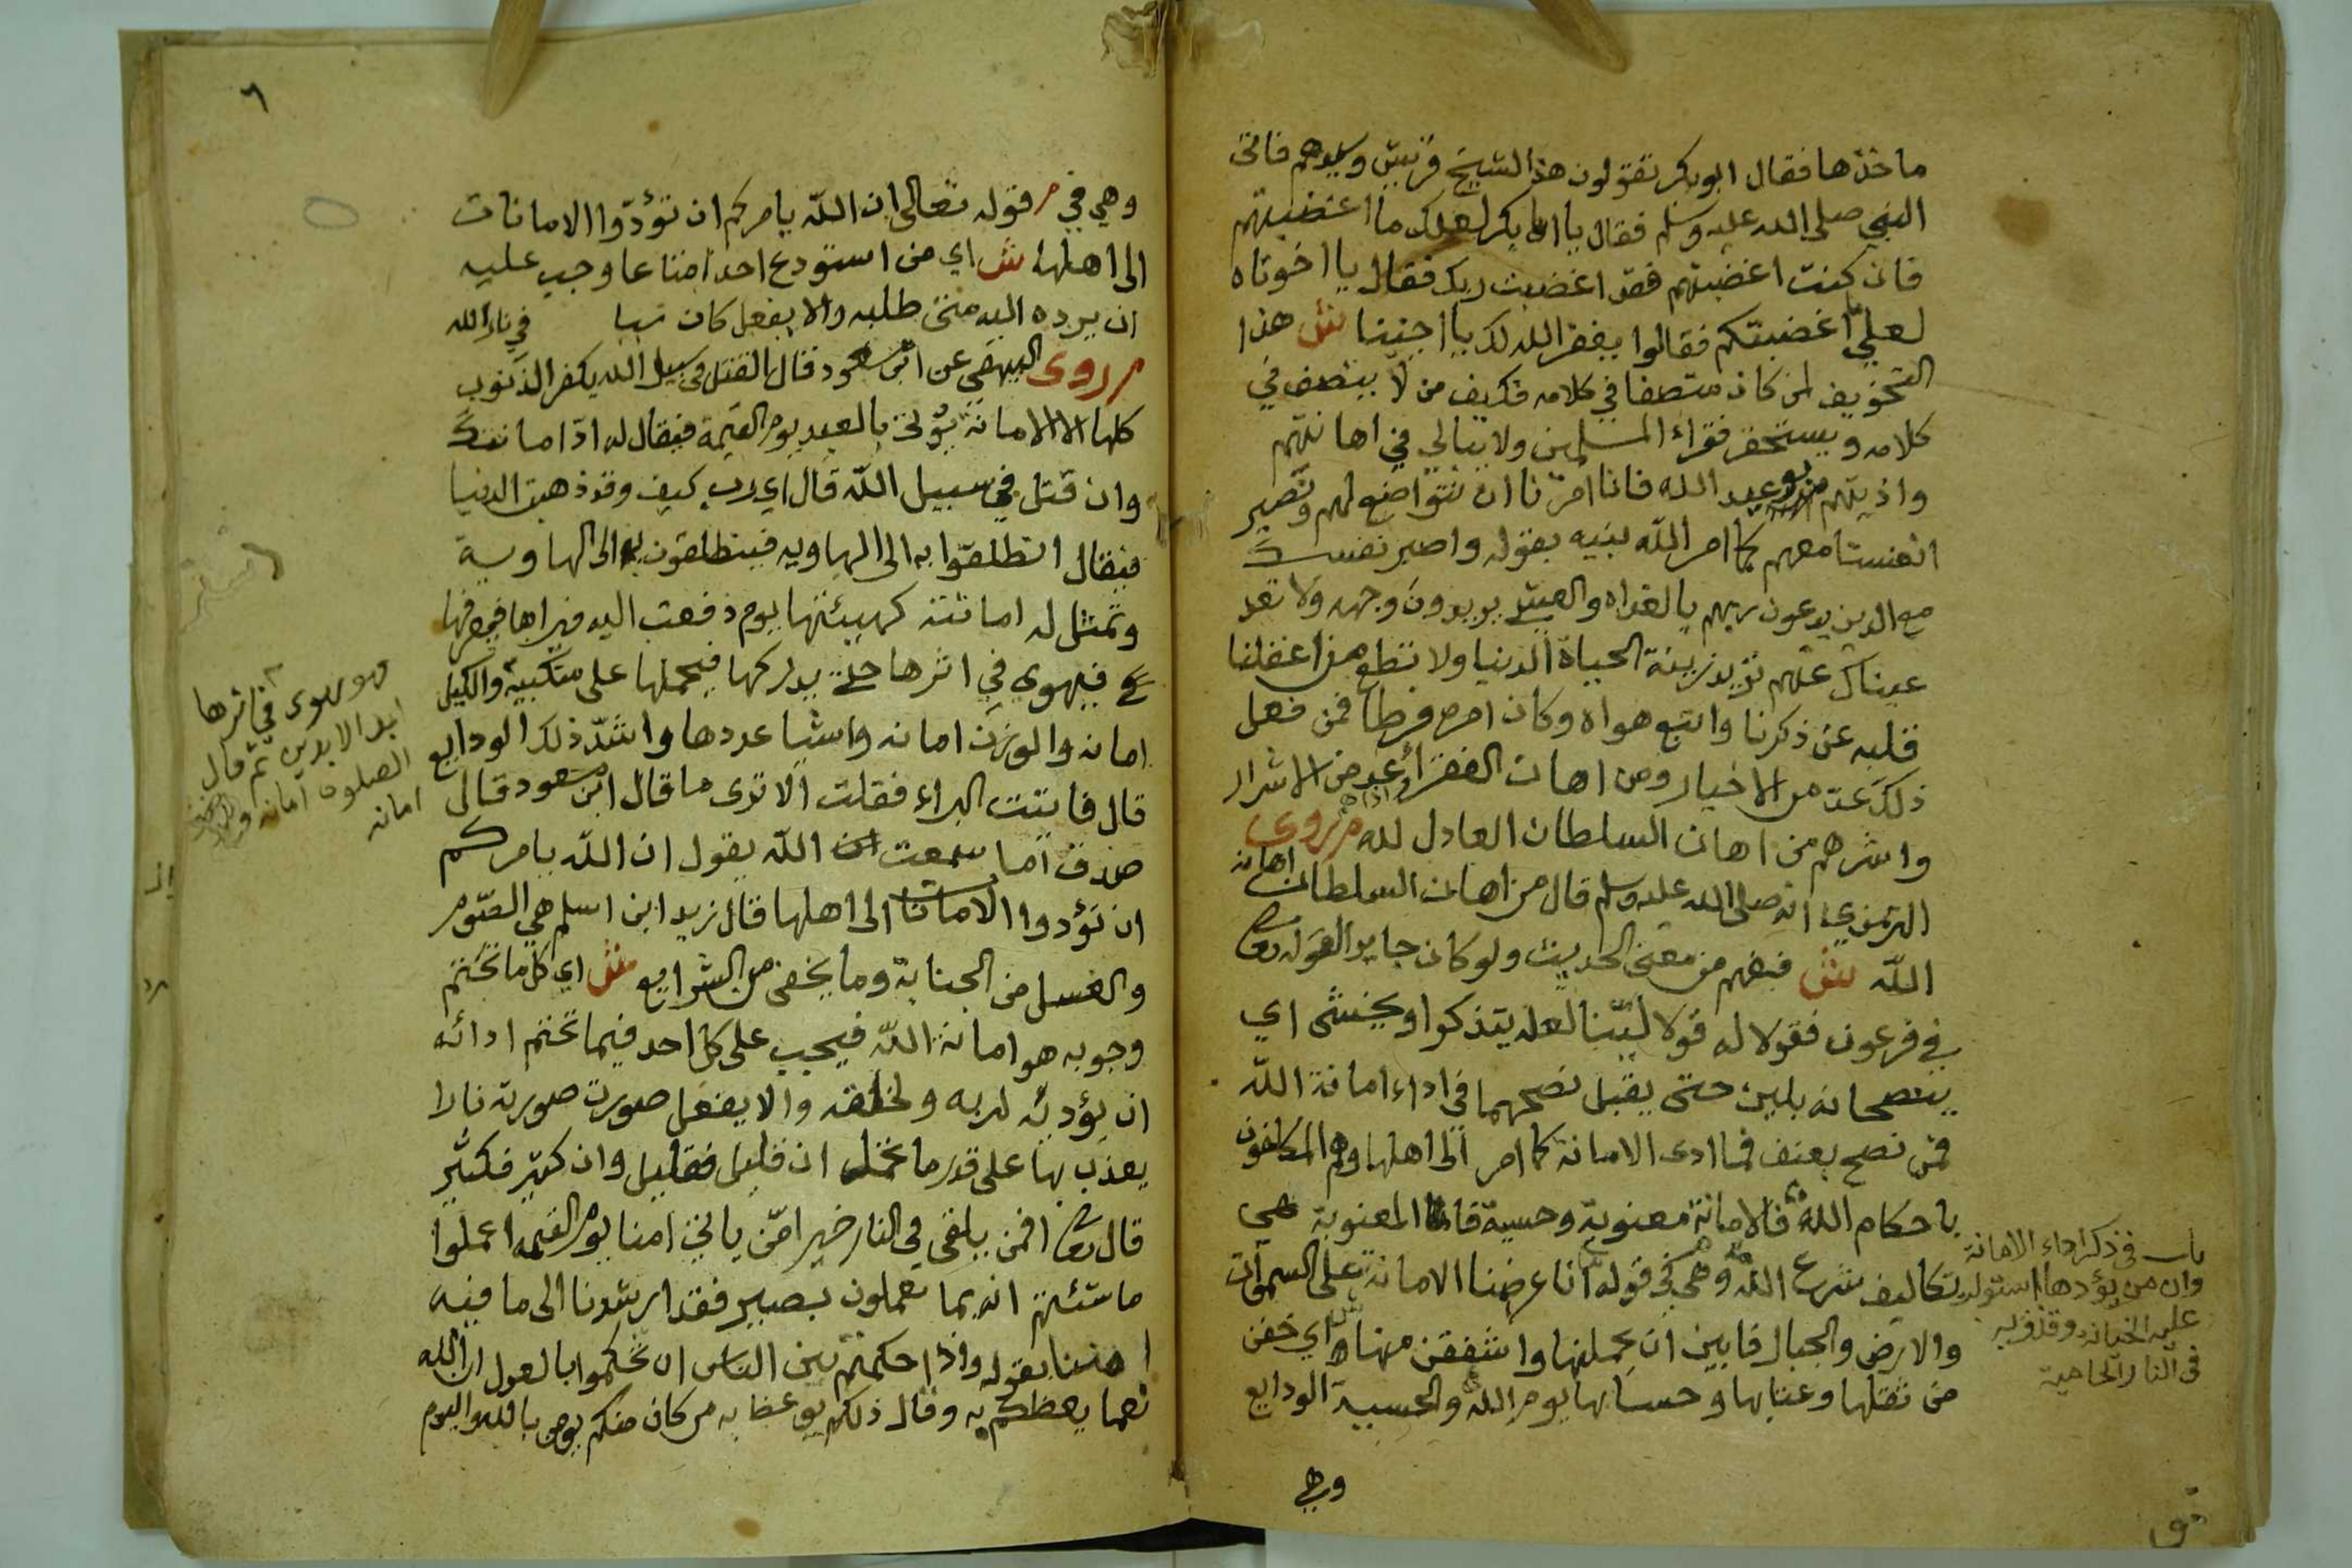 ماخذها فقال ابو بكر تقولون هذا لشيخ قريش وسيدهم فاتى
النبي صلى الله عليه وسلم فقال يا ابا بكر لعلك ما اغضبتهم
فان كنت اغضبتهم فقد اغضبت ربك فقال يا اخوتاه
لعلي اغضبتكم فقالوا يغفر الله لك يا اخينا ش هذا
التخويف لمن كان متصفا في كلامه فكيف من لا يتصف في
كلامه ويستحقر فقراء المسلمين ولا يبالي في اهانتهم
واذيتهم عبد الله فانا امرنا ان نتواضع لهم ونصبر
انفسنا معهم كما امر الله نبيه بقوله واصبر نفسك
مع الذين يدعون ربهم بالغداه والعشي يريدون وجهه ولا تعد
عيناك عنهم تريد زينة الحياة الدنيا ولا تطع من اغفلنا
قلبه عن ذكرنا واتبع هواه وكان امره فرطا فمن فعل
ذلك عد من الاخيار ومن اهان الفقراء عد من الاشرار
واشرهم من اهان السلطان العادل لله م روى
الترمذي انه صلى الله عليه وسلم قال من اهان السلطان اهانه
الله ش فيفهم من معنى الحديث ولو كان جايرا لقوله تعا
في فرعون فقولا له قولا لينا لعله يتذكر او يخشى اي
ينصحانه بلين حتى يقبل نصحهما في اداء امانة الله
فمن نصح بعنف فما ادى الامانة كما امر الى اهلها وهم المكلفون
باحكام الله فالامانة معنوية وحسية فاما المعنوية هي
تكاليف شرع الله وهي في قوله انا عرضنا الامانة على السموات
والارض والجبال فابين ان يحملنها واشفقن منها ش اي خفن
من ثقلها وعتابها وحسابها يوم الله والحسية الودايع
وهي
باب في ذكر اداء الامانة
وان من يؤدها استولى
عليه الخيانه وقذف به
في النار الحامية
٦
وهي في م قوله تعالى ان الله يامركم ان تؤدوا الامانات
الى اهلها ش اي من استودع احدا متاعا وجب عليه
ان يرده اليه متى طلبه والا يفعل كان في نار الله
م روى البيهقي عن ابن مسعود قال القتل في سبيل الله يكفر الذنوب
كلها الا الامانة يؤتى بالعبد يوم القيمة فيقال له اد امانتك
وان قتل في سبيل الله قال اي رب كيف وقد ذهبت الدنيا
فيقال انطلقوا به الى الهاويه فينطلقون به الى الهاوية
وتمثل له امانته كهيئتها يوم دفعت اليه فيراها فيعرفها
فيهوي في اثرها حتى يدركها فيحملها على منكبيه والكيل
امانه والوزن امانه واشيا عددها واشد ذلك الودايع
قال فاتيت البراء فقلت الا ترى ما قال ابن مسعود قال
صدق اما سمعت الله يقول ان الله يامركم
ان تؤدوا الامانات الى اهلها قال زيد ابن اسلم هي الصوم
والغسل من الجنابة وما يخفى من الشرايع ش اي كل ما تحتم
وجوبه هو امانة الله فيجب على كل احد فيما تحتم ادائه
ان يؤديه لربه ولخلقه والا يفعل صورت صورته نارا
يعذب بها على قدر ما تحمل ان قليل فقليل وان كثير فكثير
قال تعا افمن يلقى في النار خير امن ياتي امنا يوم القيمه اعملوا
ما شئتم انه بما تعملون بصير فقد ارشدنا الى ما فيه
بقوله واذا حكمتم بين الناس ان تحكموا بالعدل ان الله
نعما يعظكم به وقال ذلكم يوعظ به من كان منكم يومن بالله واليوم
وهو يهوى في اثرها
ابد الابدين ثم قال
الصلوة امانه
امانه